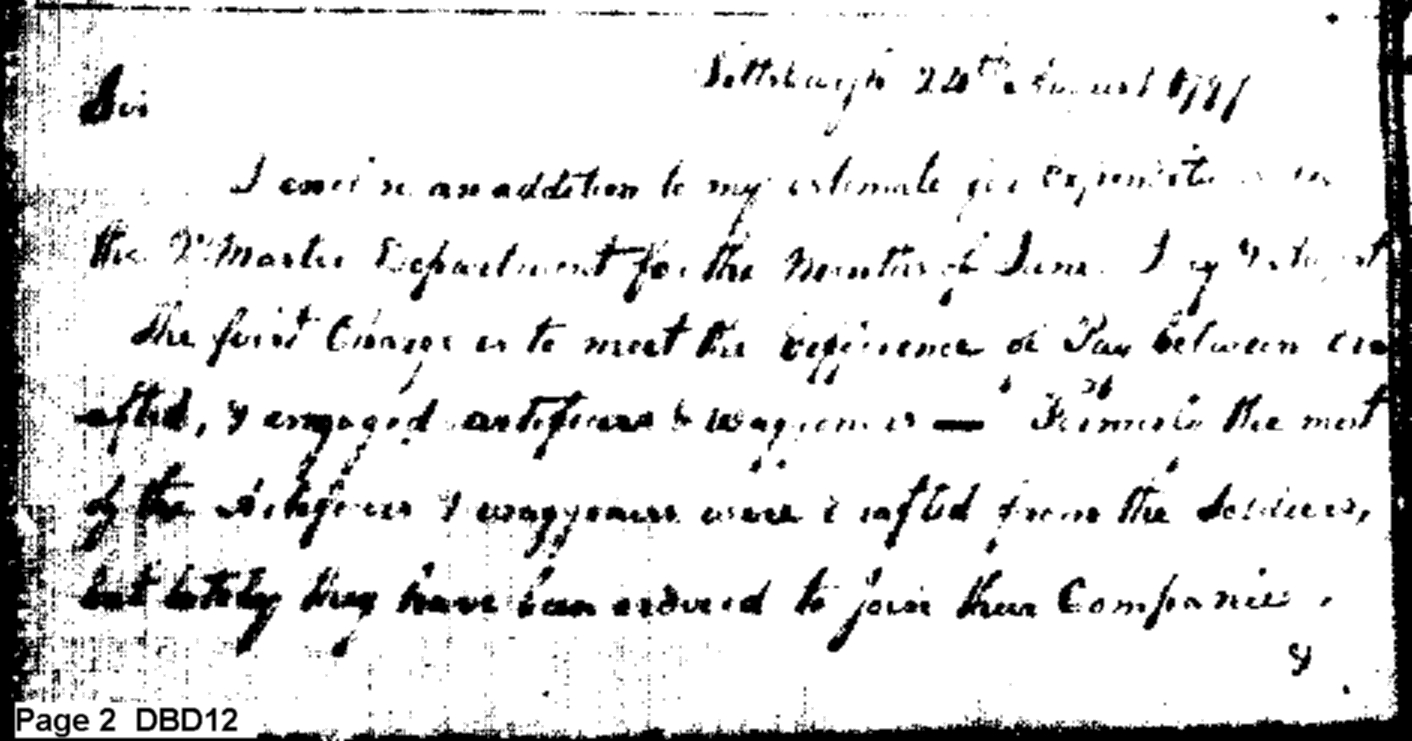 Pittsburgh 24th August 1797
Sir
I enclose an addition to my estimate for expenditures in
the Qr Master Department for the Months of June July & August
The first Charge is to meet the difference of Pay between dra
afted, & engaged artificers & waggoners — Formerly the most
of the Artificers & waggoners were drafted from the Soldiers,
but lately they have been ordered to join their Companies.
&
Page 2 DBD12